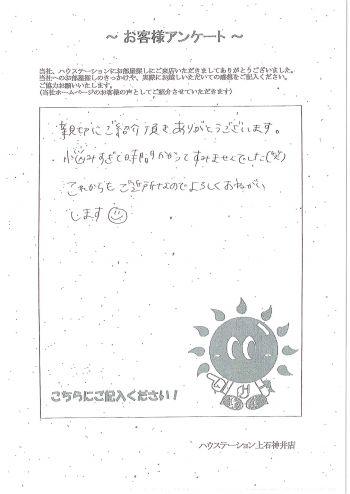 ～ お客様アンケート ～
当社、ハウステーションにお部屋探しにご来店いただきましてありがとうございました。
当社へのお部屋探しのきっかけや、実際にお越しいただいての感想をご記入ください。
ご協力お願いいたします。
(当社ホームページのお客様の声としてご紹介させていただきます)
親切にご紹介頂きありがとうございます。
悩みすぎて時間かかってすみませんでした(笑)
これからもご近所なのでよろしくおねがい
します
こちらにご記入ください！
ハウステーション上石神井店